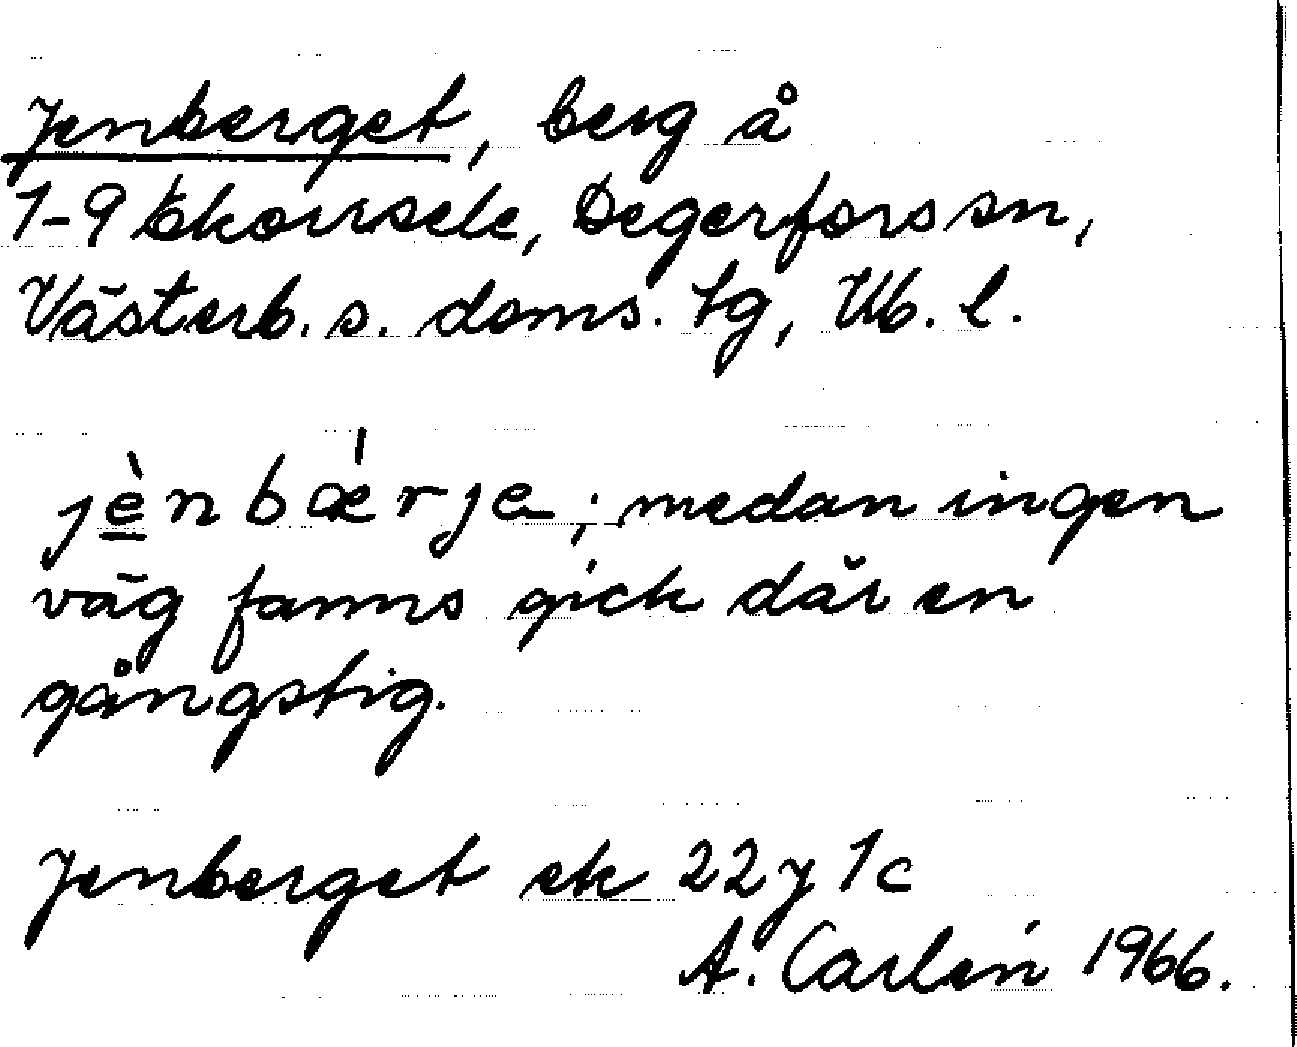 Jenberget, berg å
1-9 Ekorrsele, Degerfors sn,
Västerb. s. doms. tg, Vb. l.
jè̱nbǽrjɐ; medan ingen
väg fanns gick där en
gångstig.
Jenberget ek 22 y 1c
A. Carlén 1966.